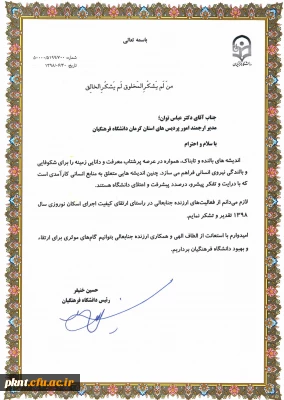 باسمه تعالی
شماره: ۵۰۰۰۰/۵۱۹۹/۲۰۰
تاریخ: ۱۳۹۸/۰۲/۳۰
مَن لَم یَشکُرِ المَخلوق لَم یَشکُرِ الخالِق
جناب آقای دکتر عباس توان؛
مدیر ارجمند امور پردیس های استان کرمان دانشگاه فرهنگیان
با سلام و احترام
اندیشه های بالنده و تابناک، همواره در عرصه پرشتاب معرفت و دانایی زمینه را برای شکوفایی
و بالندگی نیروی انسانی فراهم می سازد. چنین اندیشه هایی متعلق به منابع انسانی کارآمدی است
که با درایت و تفکر پیشرو، درصدد پیشرفت و اعتلای دانشگاه هستند.
لازم می‌دانم از فعالیت‌های ارزنده جنابعالی در راستای ارتقای کیفیت اجرای اسکان نوروزی سال
۱۳۹۸ تقدیر و تشکر نمایم.
امیدوارم با استعانت از الطاف الهی و همکاری ارزنده جنابعالی بتوانیم گام‌های موثری برای ارتقاء
و بهبود دانشگاه فرهنگیان برداریم.
حسین خنیفر
رئیس دانشگاه فرهنگیان
pknt.cfu.ac.ir